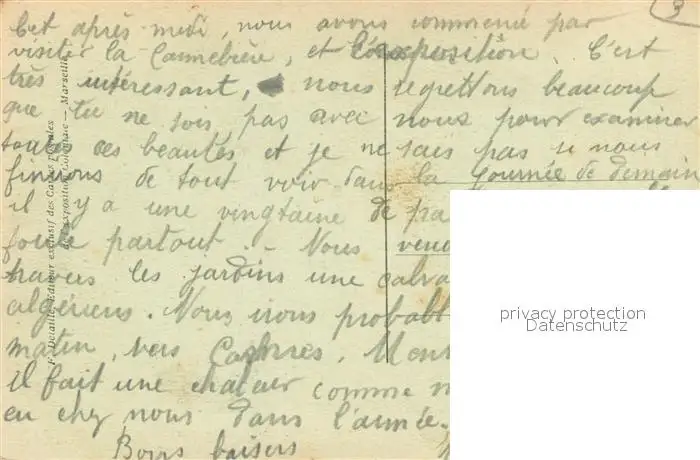 3
Cet après-midi, nous avons commencé par
visiter la Cannebière, et l'exposition. C'est
très intéressant, nous regrettons beaucoup
que tu ne sois pas avec nous pour examiner
toutes ces beautés et je ne sais pas si nous
finirons de tout voir dans la journée de demain
il y a une vingtaine de pa
foule partout. - Nous venons
travers les jardins une
algériens. Nous irons probabl
matin, vers
il fait une chaleur comme
eu chez nous dans l'année.
Bons baisers
F. Detaille, Editeur exclusif des Cartes postales
de l'Exposition Coloniale — Marseille
privacy protection
Datenschutz